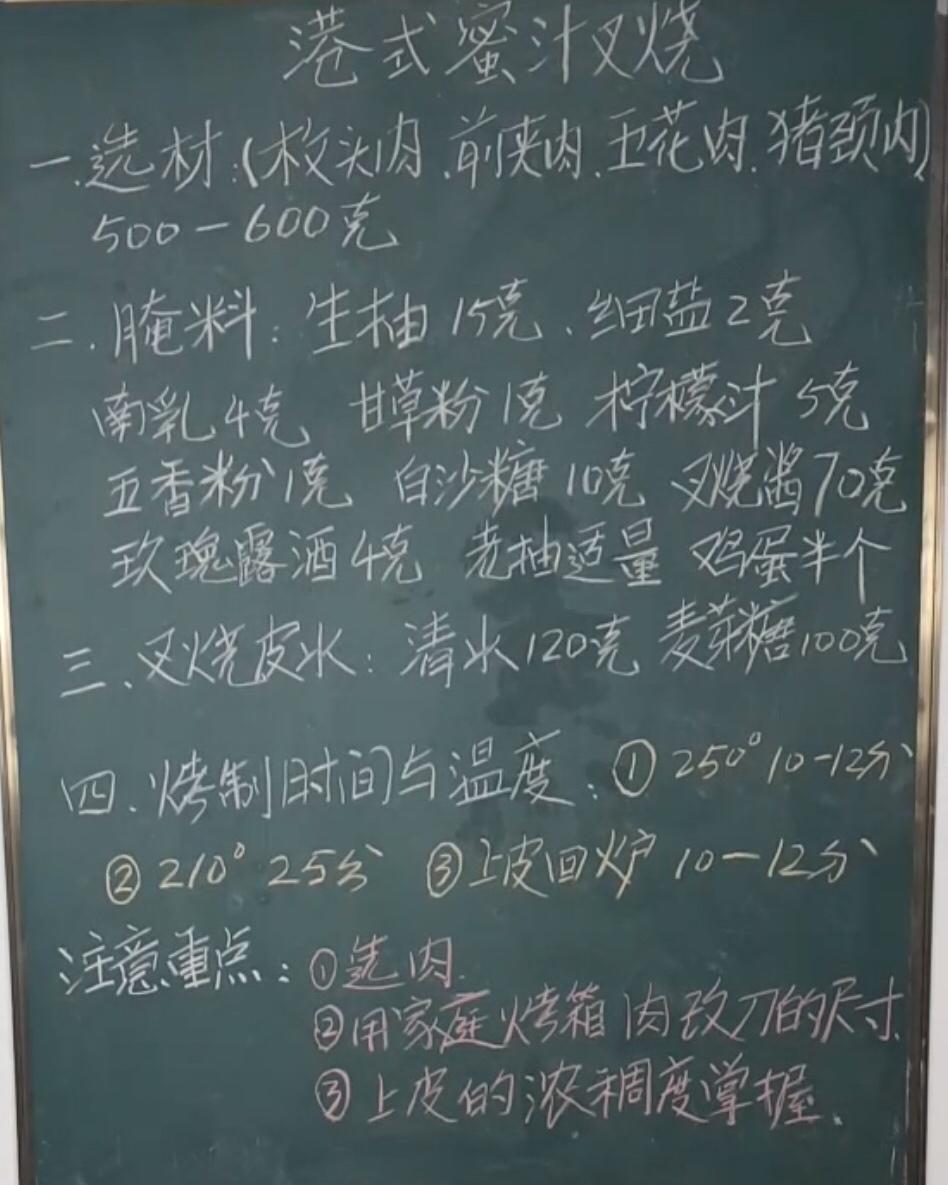 港式蜜汁叉烧
一.选材:(枚头肉.前夹肉.五花肉.猪颈肉)
500-600克
二.腌料:生抽15克、细盐2克
南乳4克 甘草粉1克 柠檬汁5克
五香粉1克 白沙糖10克 叉烧酱70克
玫瑰露酒4克 老抽适量 鸡蛋半个
三、叉烧皮水:清水120克 麦芽糖100克
四.烤制时间与温度:①250°10-12分
②210°25分 ③上皮回炉10-12分
注意重点:①选肉.
②用家庭烤箱肉改刀的尺寸.
③上皮的浓稠度掌握.